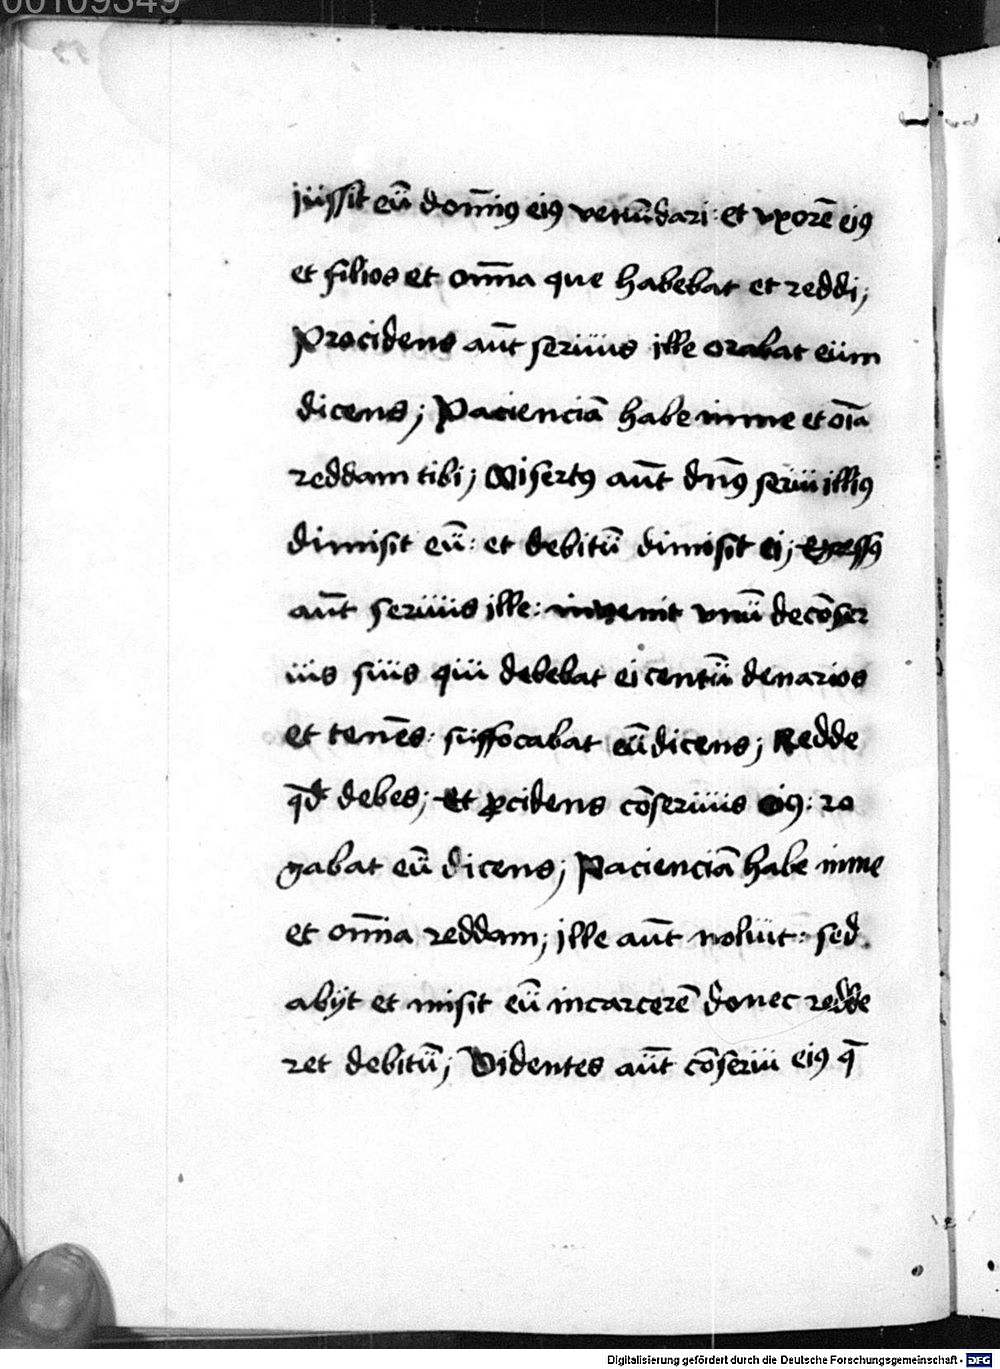 00109349
jussit eū dom̄iꝰ eiꝰ venūdari: et vxorē eiꝰ
et filios et om̄ia que habebat et reddi;
Procidens aūt seruus ille orabat eum
dicens; Pacienciā habe inme et oīa
reddam tibi; Misertꝰ aūt dn̄s serui illiꝰ
dimisit eū: et debitū dimisit ei; egressꝰ
aūt seruus ille: invenit vnū decōser
uis suis qui debebat ei centū denarios
et tenēs: suffocabat eū dicens; Redde
qd̄ debes; Et ꝓcidens cōseruus eiꝰ: ro
gabat eū dicens; Pacienciā habe inme
et om̄ia reddam; ille aūt noluit: sed
abijt et misit eū incarcerē donec redde
ret debitū; Videntes aūt cōserui eiꝰ q̄
Digitalisierung gefördert durch die Deutsche Forschungsgemeinschaft - DFG